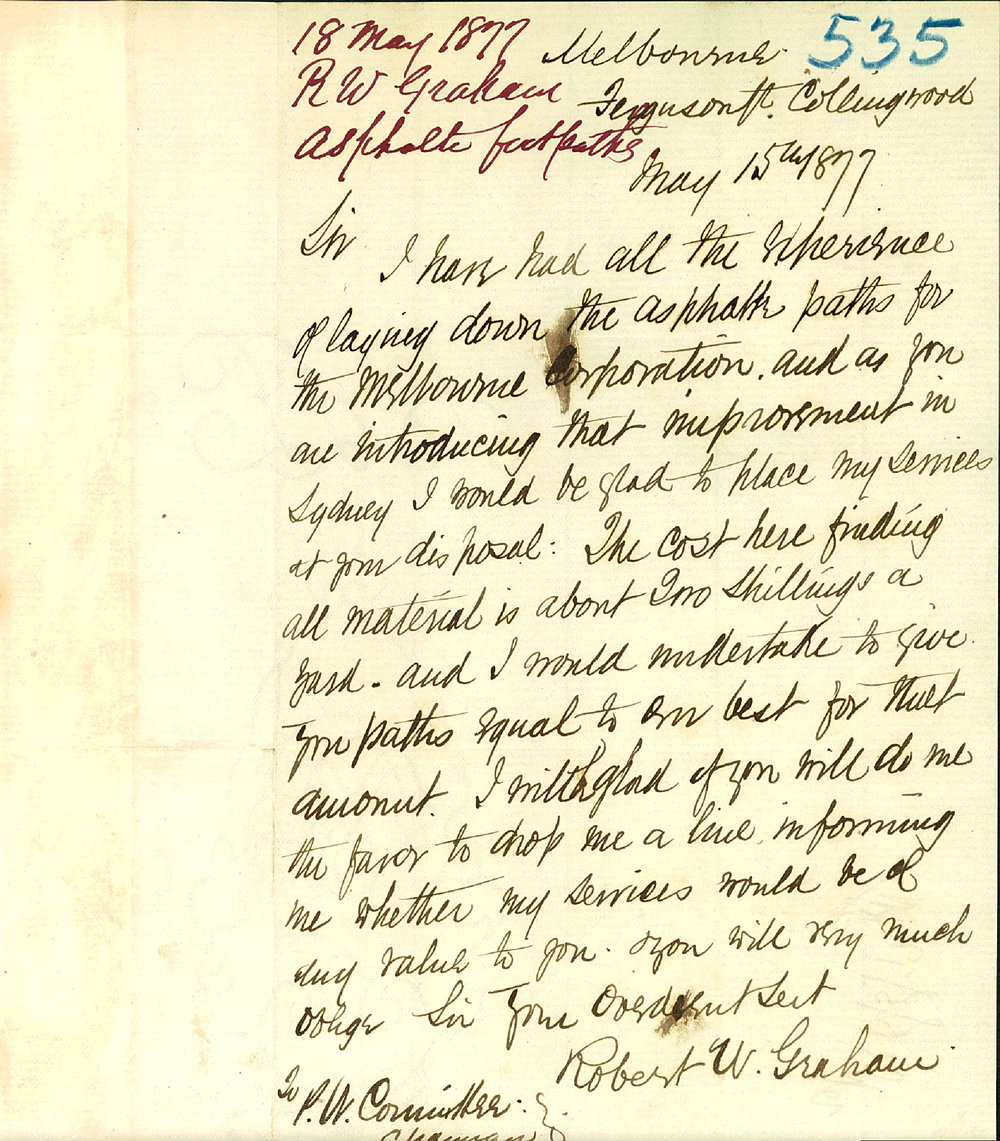 18 May 1877
R W Graham
Asphalte footpaths
535
Melbourne
Ferguson St. Collingwood
May 15th 1877
Sir
I have had all the experience
of laying down the asphalte paths for
the Melbourne Corporation. and as you
are introducing that improvement in
Sydney I would be glad to place my services
at your disposal: The cost here finding
all material is about Two Shillings a
yard - and I would undertake to give
you paths equal to our best for that
amount. I will be glad if you will do me
the favor to drop me a line informing
me whether my services would be of
any value to you. & you will very much
oblige Sir Your Obedient Sert
Robert W. Graham
To P. W. Committee.
Chairman